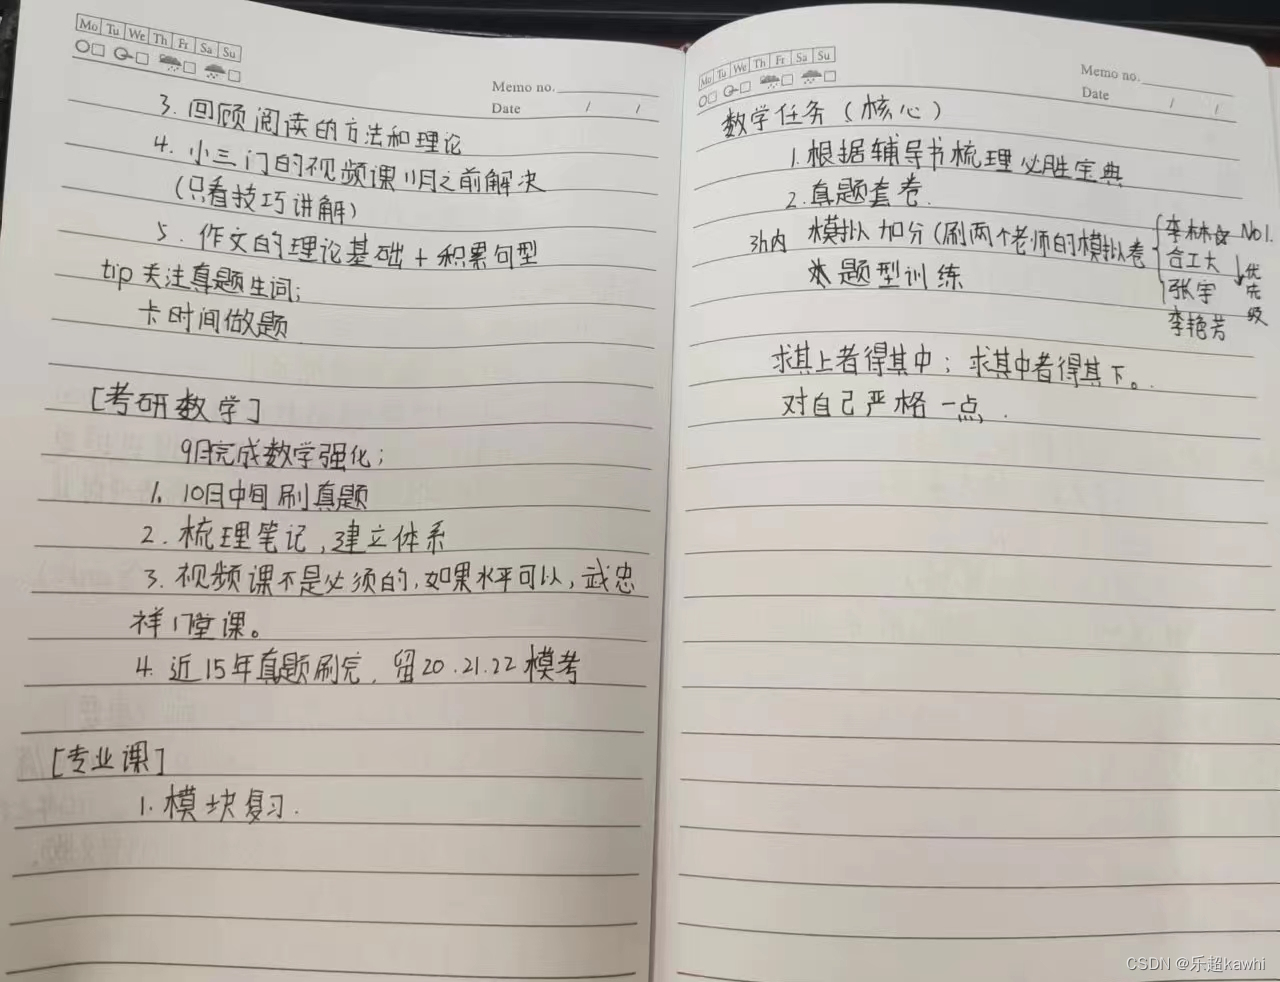 Mo Tu We Th Fr Sa Su
Memo no.
Date / /
3. 回顾阅读的方法和理论
4. 小三门的视频课11月之前解决
(只看技巧讲解)
5. 作文的理论基础 + 积累句型
tip 关注真题生词;
卡时间做题
[考研数学]
9月完成数学强化;
1. 10月中旬刷真题
2. 梳理笔记,建立体系
3. 视频课不是必须的,如果水平可以,武忠
祥17堂课。
4. 近15年真题刷完, 留20.21.22模考
[专业课]
1. 模块复习.
Mo Tu We Th Fr Sa Su
Memo no.
Date / /
数学任务 (核心)
1. 根据辅导书梳理必胜宝典
2. 真题套卷.
3h内 模拟加分(刷两个老师的模拟卷
题型训练
李林 No1.
合工大
张宇
李艳芳
优先级
求其上者得其中; 求其中者得其下。
对自己严格一点.
CSDN @乐超kawhi